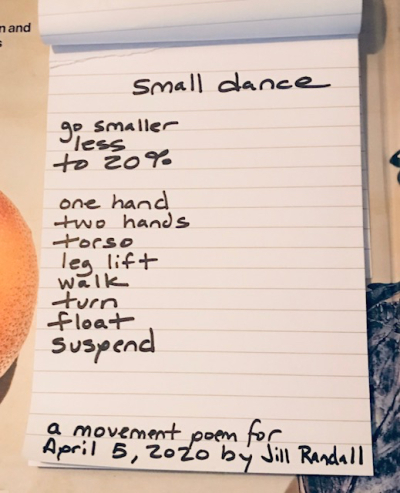 n and
s
small dance
go smaller
less
to 20%
one hand
two hands
torso
leg lift
walk
turn
float
suspend
a movement poem for
April 5, 2020 by Jill Randall